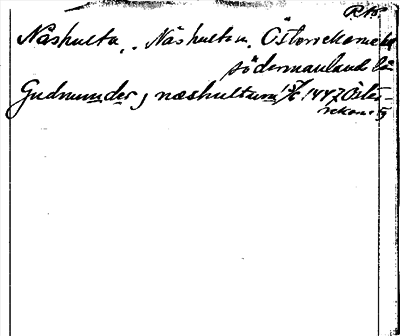 Näshulta, Näshulta sn, Österrekarne hd
södermanlands lä
Gudmunder, næshultum 1447 Öster-
rekarne